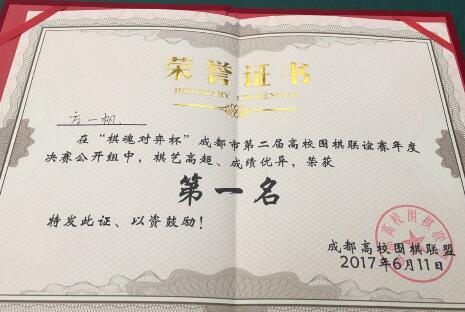 荣誉证书
HONORARY CREDENTIAL
方一帆
在“棋魂对弈杯”成都市第二届高校围棋联谊赛年度
决赛公开组中，棋艺高超、成绩优异，荣获
第一名
特发此证、以资鼓励！
成都高校围棋联盟
2017年6月11日